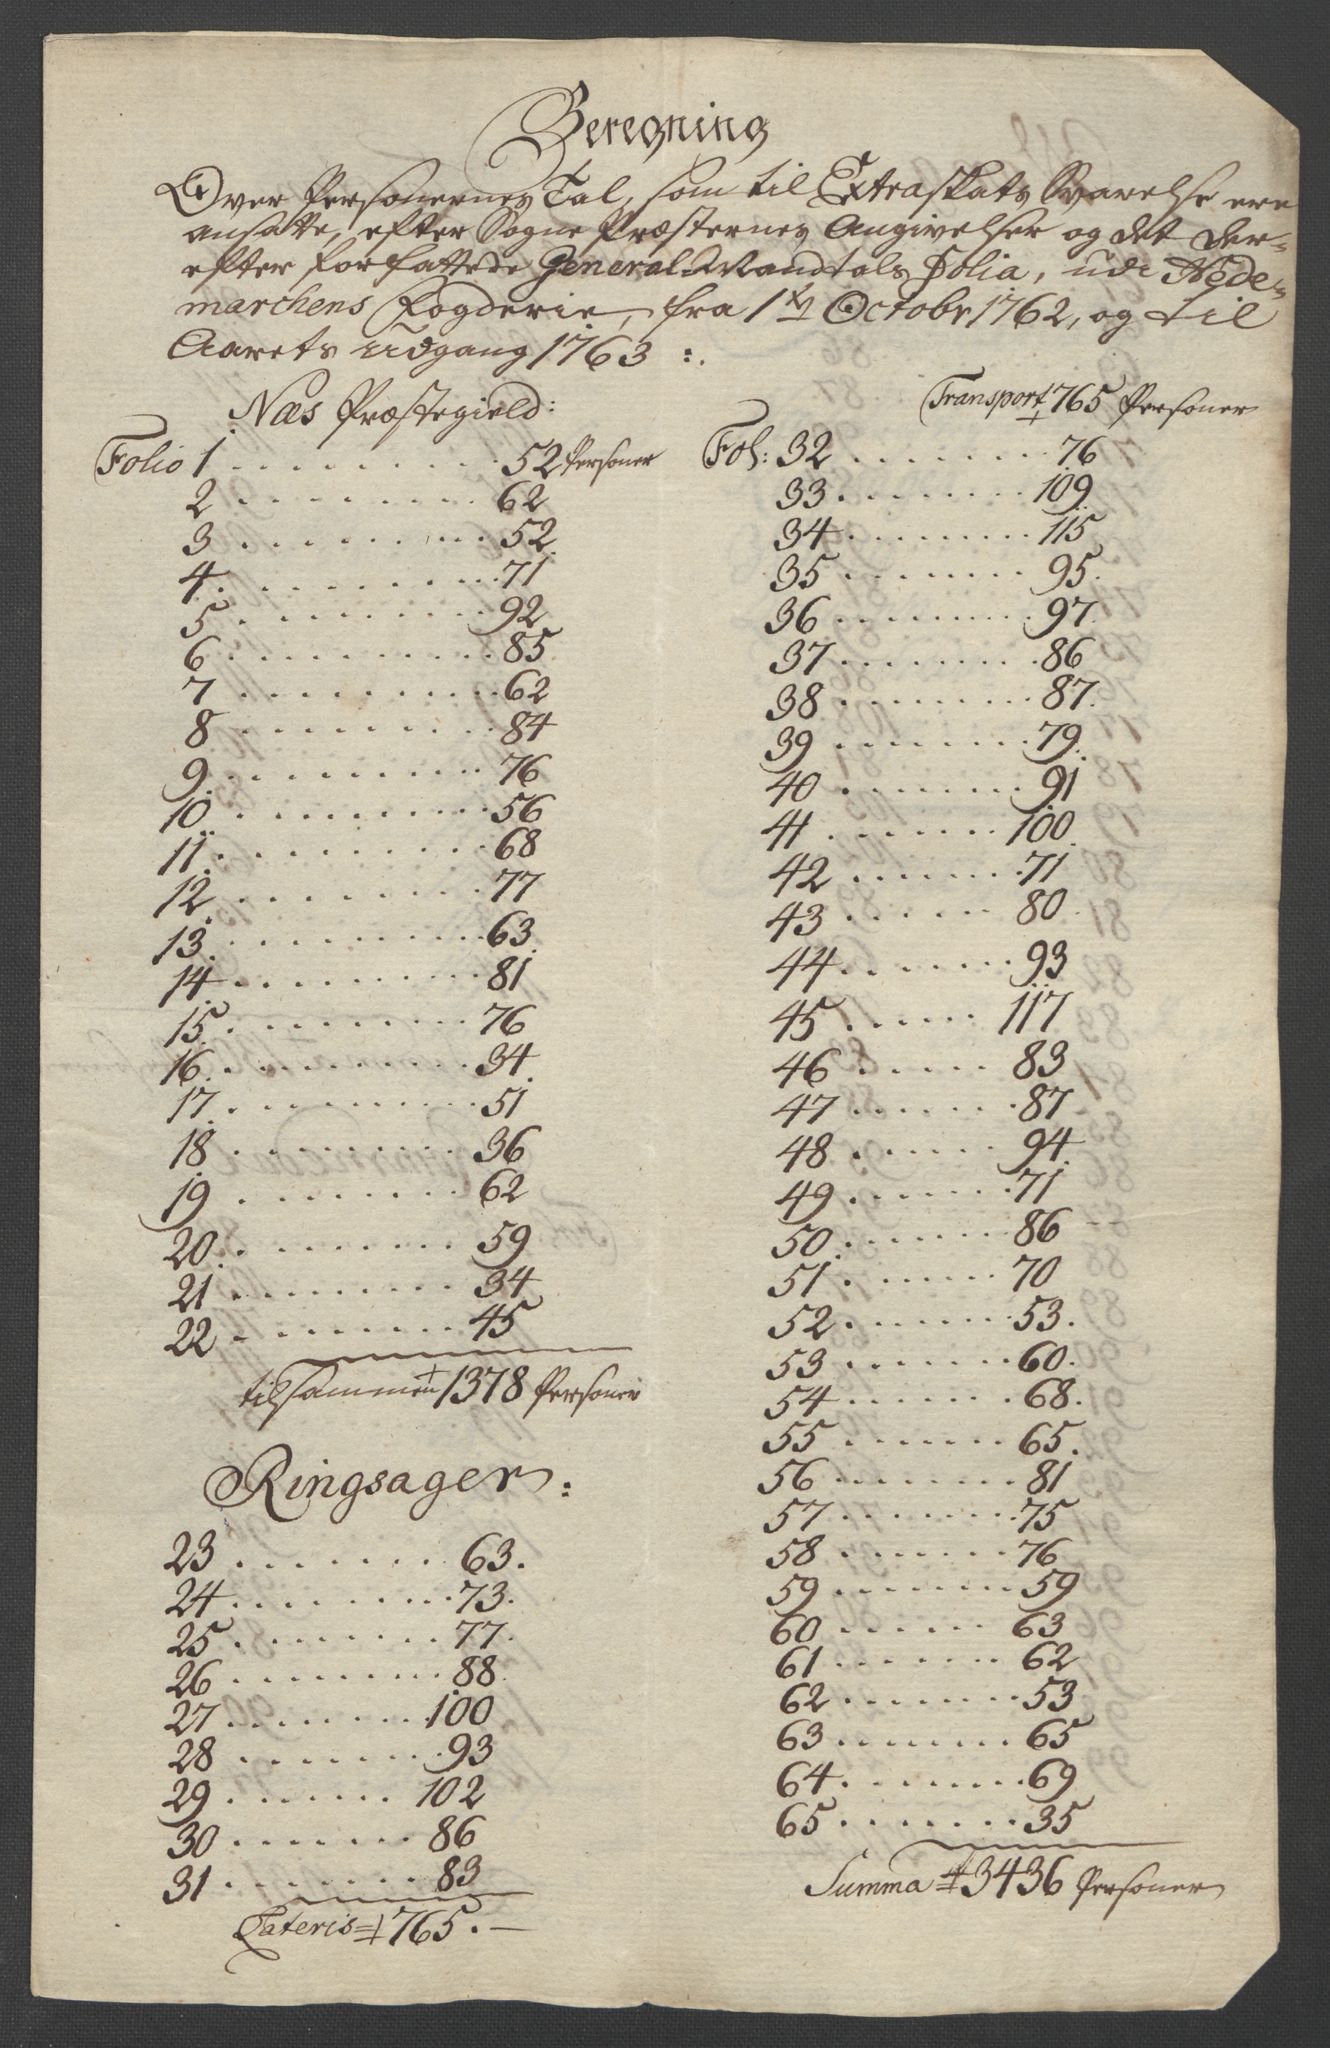 Beregning
Over Personernes Tal, som til Extraskats Svarelse ere
ansatte, efter Sogne Præsternes Angivelser og det der-
efter forfattede General-Mandtals Folia, udi Hede-
marchens Fogderie, fra 1ste Octobr 1762, og til
Aarets Udgang 1763 :.
Næs Præstegield:
Folio 1 . . . . . . . . . 52 Personer
2 . . . . . . . . . 62
3 . . . . . . . . . 52
4 . . . . . . . . . 71
5 . . . . . . . . . 92
6 . . . . . . . . . 85
7 . . . . . . . . . 62
8 . . . . . . . . . 84
9 . . . . . . . . . 76
10 . . . . . . . . . 56
11 . . . . . . . . . 68
12 . . . . . . . . . 77
13 . . . . . . . . . 63
14 . . . . . . . . . 81
15 . . . . . . . . . 76
16 . . . . . . . . . 34
17 . . . . . . . . . 51
18 . . . . . . . . . 36
19 . . . . . . . . . 62
20 . . . . . . . . . 59
21 . . . . . . . . . 34
22 . . . . . . . . . 45
tilsammen 1378 Personer
Ringsager:
23 . . . . . . . . 63.
24 . . . . . . . . 73.
25 . . . . . . . . 77.
26 . . . . . . . . 88
27 . . . . . . . . 100
28 . . . . . . . . 93
29 . . . . . . . 102
30 . . . . . . . 86
31 . . . . . . . 83
Lateris 765. —
Transport 765 Personer
Fol: 32 . . . . . . . 76
33 . . . . . . . . 109
34 . . . . . . . . 115
35 . . . . . . . . 95.
36 . . . . . . . . 97
37 . . . . . . . . 86
38 . . . . . . . . 87.
39 . . . . . . . . 79
40 . . . . . . . . 91
41 . . . . . . . . 100
42 . . . . . . . . 71
43 . . . . . . 80
44 . . . . . . . 93
45 . . . . . . 117
46 . . . . . . 83
47 . . . . . . . 87
48 . . . . . . . 94
49 . . . . . . . 71
50 . . . . . . . 86
51 . . . . . . . 70
52 . . . . . . . 53.
53 . . . . . . . 60.
54 . . . . . . . 68.
55 . . . . . . . 65.
56 . . . . . . . 81
57 . . . . . . . 75
58 . . . . . . . 76
59 . . . . . . . 59
60 . . . . . . . 63
61 . . . . . . . 62
62 . . . . . . . 53
63 . . . . . . . 65
64 . . . . . . . 69
65 . . . . . . . 35
Summa 3436 Personer